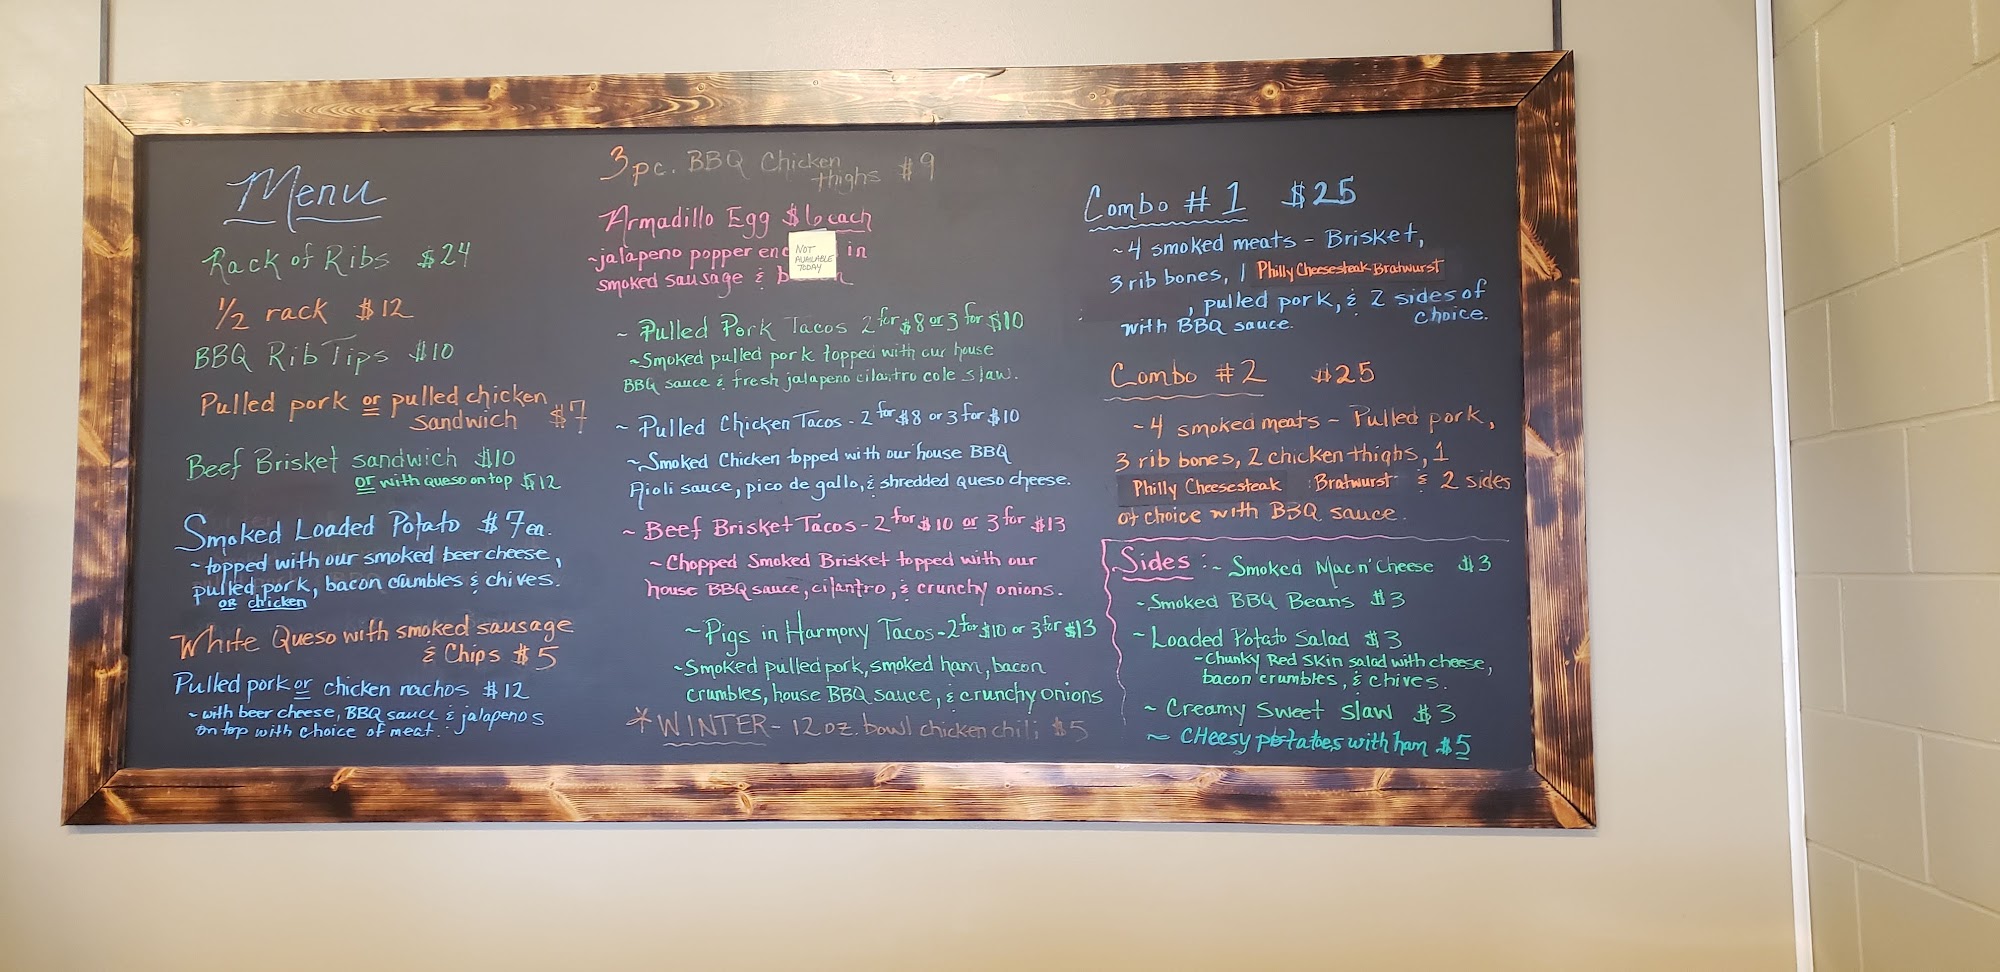 Menu
Rack of Ribs $24
1/2 rack $12
BBQ Rib Tips $10
Pulled pork or pulled chicken
sandwich $7
Beef Brisket sandwich $10
or with queso on top $12
Smoked Loaded Potato $7 ea.
~topped with our smoked beer cheese,
pulled pork, bacon crumbles & chives.
or chicken
White Queso with smoked sausage
& Chips $5
Pulled pork or chicken nachos $12
~with beer cheese, BBQ sauce & jalapenos
on top with choice of meat.
3pc. BBQ Chicken
thighs $9
Armadillo Egg $6 each
~jalapeno popper in
smoked sausage &
NOT
AVAILABLE
TODAY
~ Pulled Pork Tacos 2 for $8 or 3 for $10
~Smoked pulled pork topped with our house
BBQ sauce & fresh jalapeno cilantro cole slaw.
~ Pulled Chicken Tacos - 2 for $8 or 3 for $10
~Smoked Chicken topped with our house BBQ
Aioli sauce, pico de gallo, & shredded queso cheese.
~ Beef Brisket Tacos - 2 for $10 or 3 for $13
~Chopped Smoked Brisket topped with our
house BBQ sauce, cilantro, & crunchy onions.
~Pigs in Harmony Tacos - 2 for $10 or 3 for $13
~Smoked pulled pork, smoked ham, bacon
crumbles, house BBQ sauce, & crunchy onions
*WINTER - 12 oz. bowl chicken chili $5
Combo #1 $25
~4 smoked meats - Brisket,
3 rib bones, 1 Philly Cheesesteak Bratwurst
, pulled pork, & 2 sides of
with BBQ sauce. choice.
Combo #2 $25
~4 smoked meats - Pulled pork,
3 rib bones, 2 chicken thighs, 1
Philly Cheesesteak Bratwurst & 2 sides
of choice with BBQ sauce.
Sides: ~ Smoked Mac n' Cheese $3
~Smoked BBQ Beans $3
~Loaded Potato Salad $3
~Chunky Red Skin salad with cheese,
bacon crumbles, & chives.
~ Creamy Sweet Slaw $3
~ CHeesy potatoes with ham $5